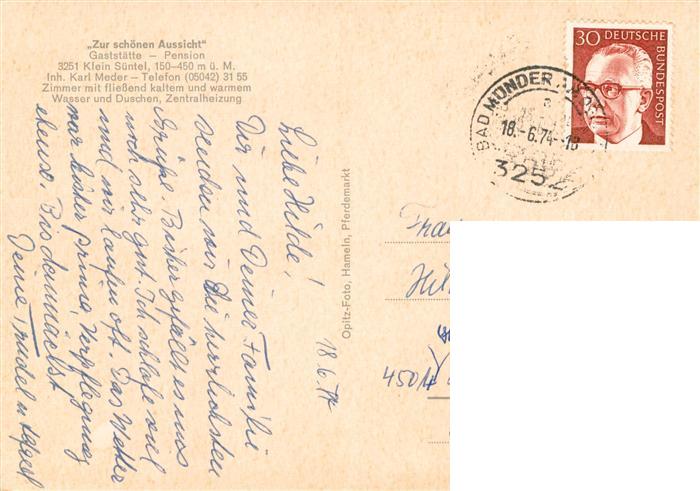 „Zur schönen Aussicht"
Gaststätte – Pension
3251 Klein Süntel, 150–450 m ü. M.
Inh. Karl Meder – Telefon (05042) 31 55
Zimmer mit fließend kaltem und warmem
Wasser und Duschen, Zentralheizung
18.6.74
Liebe Hilde!
Dir und Deiner Familie
senden wir die herzlichsten
Grüße. Bisher gefällt es uns
auch sehr gut. Ich schlafe viel
und wir laufen oft. Das Wetter
war bisher prima, Verpflegung
ebenso. Bis demnächst
Deine Trudel u.
Opitz-Foto, Hameln, Pferdemarkt
30 DEUTSCHE
BUNDESPOST
BAD MÜNDER
18.-6.74-18
3252
Frau
Hil
450